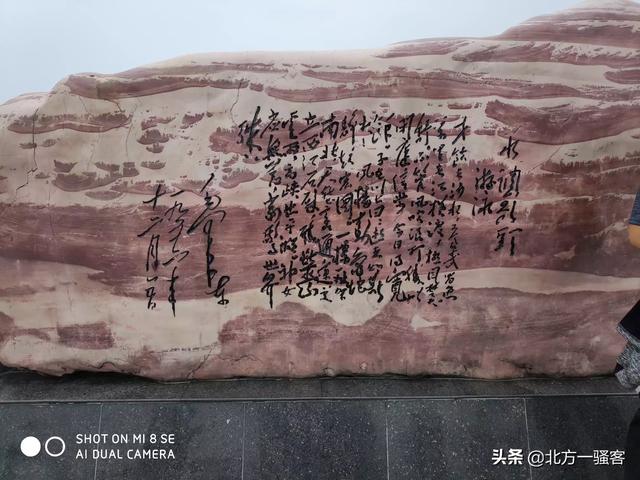 水调歌头
游泳
才饮长沙水又食武昌鱼万
里长江横渡极目楚天
舒不管风吹浪打胜似
闲庭信步今日得宽
馀子在川上曰逝者如斯
夫风樯动龟蛇静
起宏图一桥飞架
南北天堑变通途更
立西江石壁截断巫山
云雨高峡出平湖神女
应无恙当惊世界
殊
毛泽东
一九五六年
十二月五日
SHOT ON MI 8 SE
AI DUAL CAMERA
头条 @北方一骚客